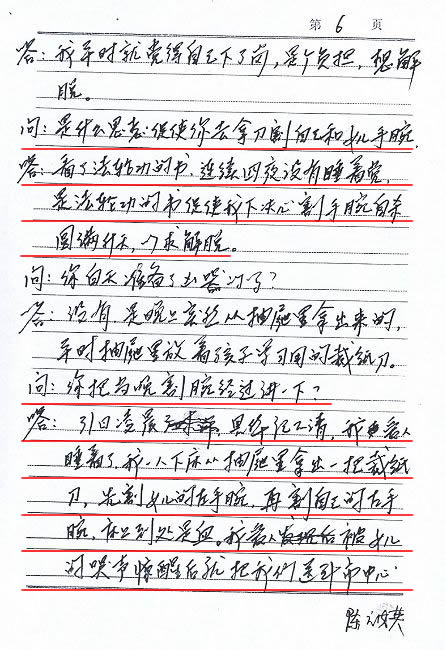 第 6 页
答：我平时就觉得自己下了岗，是个负担，想解
脱。
问：是什么思想促使你去拿刀割自己和女儿手腕，
答：看了法轮功的书，连续四夜没有睡着觉，
是法轮功的书促使我下决心割手腕自杀
圆满升天，以求解脱。
问：你白天准备了工具了吗？
答：没有，是晚上突然从抽屉里拿出来的，
平时抽屉里放着孩子学习用的裁纸刀。
问：你把当晚割腕经过讲一下？
答：31日凌晨 具体记不清，我爱人
睡着了，我一人下床从抽屉里拿出一把裁纸
刀，先割女儿的左手腕，再割自己的左手
腕，床上到处是血。我爱人 后被女儿
的哭声惊醒后就把我们送到市中心